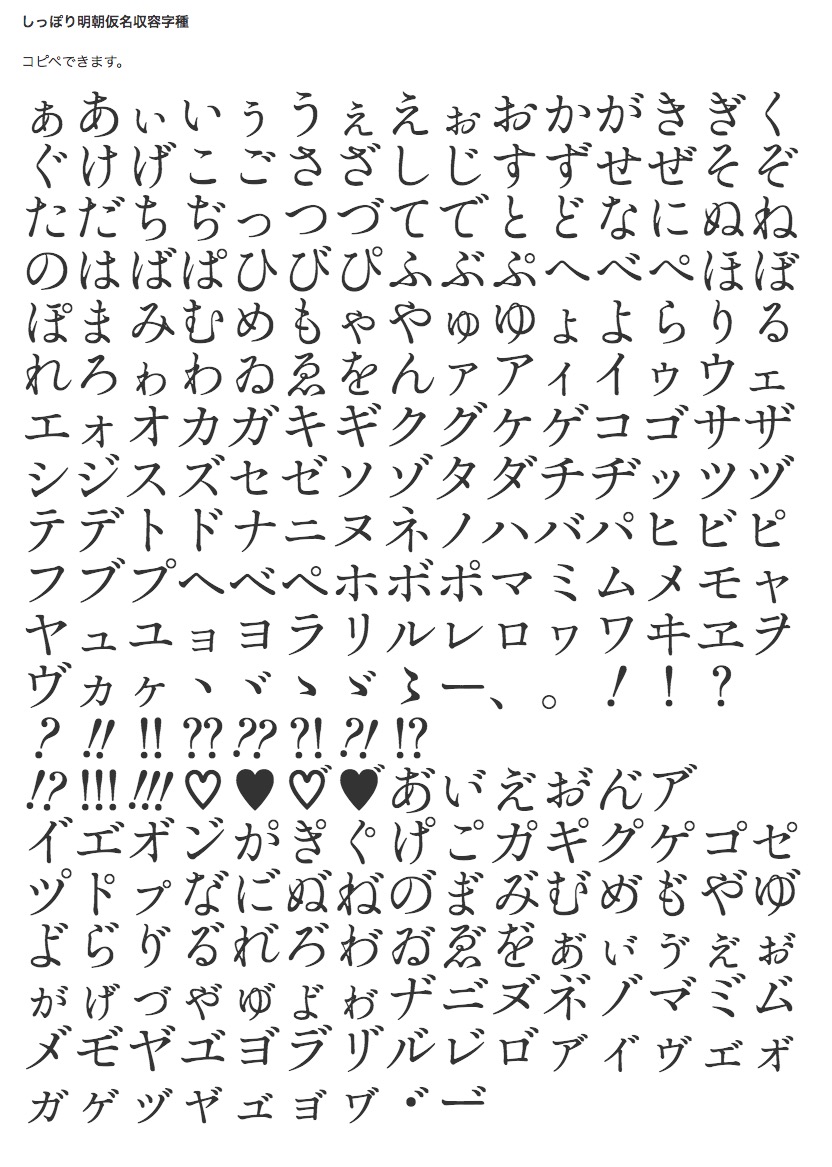 しっぽり明朝仮名収容字種
コピペできます。
ぁあぃいぅうぇえぉおかがきぎく
ぐけげこごさざしじすずせぜそぞ
ただちぢっつづてでとどなにぬね
のはばぱひびぴふぶぷへべぺほぼ
ぽまみむめもゃやゅゆょよらりる
れろゎわゐゑをんァアィイゥウェ
エォオカガキギクグケゲコゴサザ
シジスズセゼソゾタダチヂッツヅ
テデトドナニヌネノハバパヒビピ
フブプヘベペホボポマミムメモャ
ヤュユョヨラリルレロヮワヰヱヲ
ヴヵヶヽヾゝゞ〻ー、。!!?
?!!!!?????!?!!?
!?!!!!!!♡♥♡゙♥゙あ゙い゙え゙お゙ん゙ア゙
イ゙エ゙オ゙ン゙か゚き゚く゚け゚こ゚カ゚キ゚ク゚ケ゚コ゚セ゚
ツ゚ト゚ㇷ゚な゙に゙ぬ゙ね゙の゙ま゙み゙む゙め゙も゙や゙ゆ゙
よ゙ら゙り゙る゙れ゙ろ゙わ゙ゐ゙ゑ゙を゙ぁ゙ぃ゙ぅ゙ぇ゙ぉ゙
ゕ゙ゖ゙っ゙ゃ゙ゅ゙ょ゙ゎ゙ナ゙ニ゙ヌ゙ネ゙ノ゙マ゙ミ゙ム゙
メ゙モ゙ヤ゙ユ゙ヨ゙ラ゙リ゙ル゙レ゙ロ゙ァ゙ィ゙ゥ゙ェ゙ォ゙
ヵ゙ヶ゙ッ゙ャ゙ュ゙ョ゙ヮ゙・゙ー゙